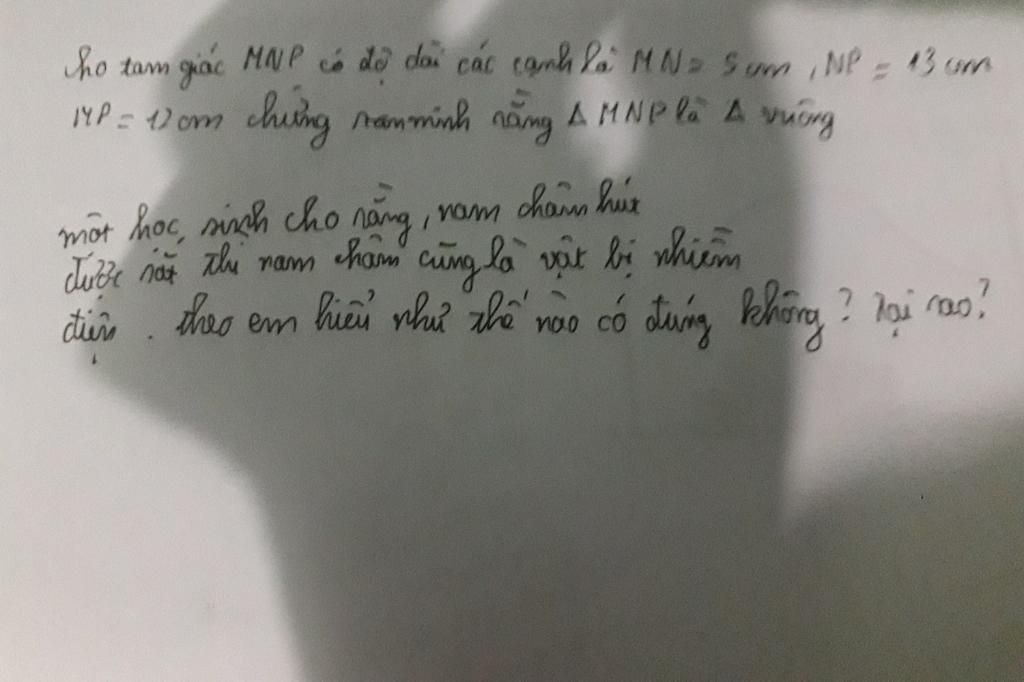 Cho tam giác MNP có độ dài các cạnh là MN = 5 cm, NP = 13 cm
MP = 12cm chứng minh rằng Δ MNP là Δ vuông
một học sinh cho rằng, nam châm hút
được sắt thì nam châm cũng là vật bị nhiễm
điện. theo em hiểu như thế nào có đúng không? Tại sao?